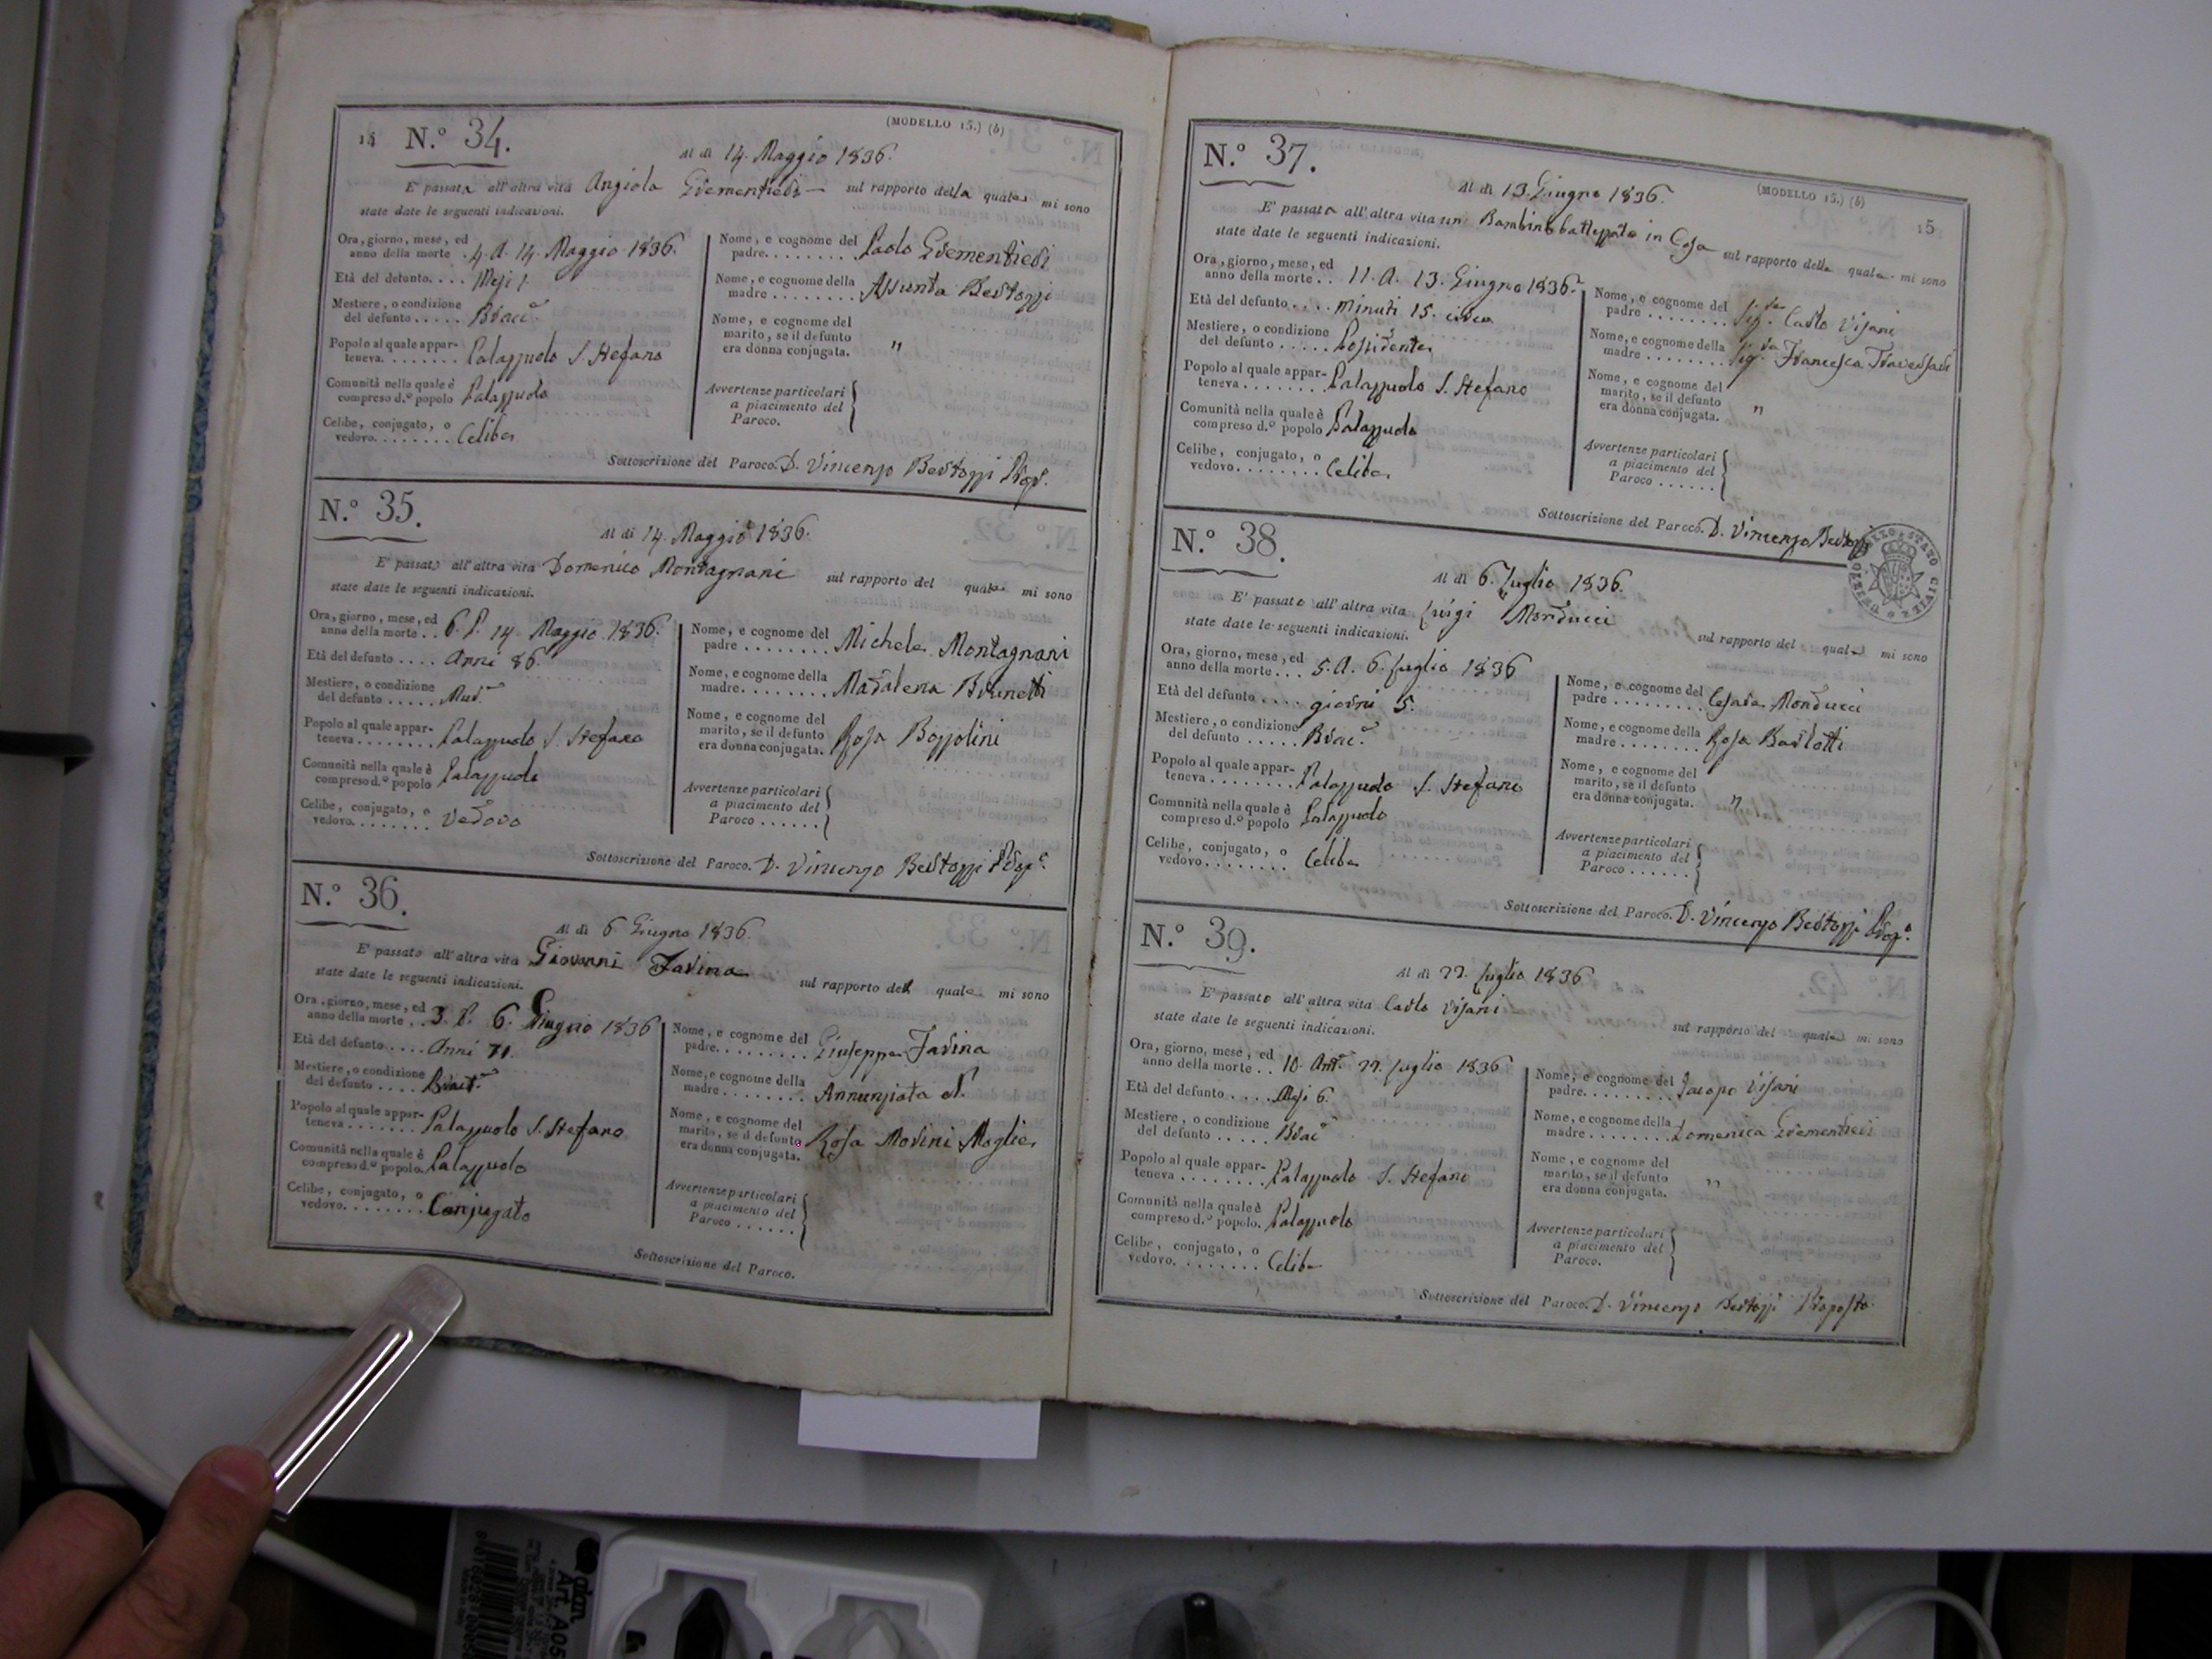 14 N.º 34.
(MODELLO 15.) (b)
Al dì 14. Maggio 1836.
E' passata all'altra vita Angiola sul rapporto della quale mi sono
state date le seguenti indicazioni.
Ora, giorno, mese, ed
anno della morte . 4. A. 14. Maggio 1836.
Età del defunto. . . . Mesi 1
Mestiere, o condizione
del defunto . . . . .
Popolo al quale appar-
teneva. . . . . . . . Palazzuolo S. Stefano
Comunità nella quale è
compreso d.º popolo Palazzuolo
Celibe, conjugato, o
vedovo. . . . . . . . Celibe
Nome, e cognome del
padre. . . . . . . . Paolo
Nome, e cognome della
madre . . . . . . . . Assunta Bertozzi
Nome, e cognome del
marito, se il defunto
era donna conjugata. "
Avvertenze particolari
a piacimento del
Paroco.
Sottoscrizione del Paroco. D. Vincenzo Bertozzi Prop.
N.º 35.
Al dì 14. Maggio 1836.
E' passato all'altra vita Domenico Montagnani sul rapporto del quale mi sono
state date le seguenti indicazioni.
Ora, giorno, mese, ed
anno della morte . . 6. P. 14. Maggio 1836.
Età del defunto . . . . Anni 86.
Mestiere, o condizione
del defunto . . . . .
Popolo al quale appar-
teneva . . . . . . . . Palazzuolo S. Stefano
Comunità nella quale è
compreso d.º popolo Palazzuolo
Celibe, conjugato, o
vedovo. . . . . . . . Vedovo
Nome, e cognome del
padre . . . . . . . . Michele Montagnani
Nome, e cognome della
madre. . . . . . . . Madalena Brunetti
Nome, e cognome del
marito, se il defunto
era donna conjugata. Rosa Bozzolini
Avvertenze particolari
a piacimento del
Paroco . . . . . .
Sottoscrizione del Paroco. D. Vincenzo Bertozzi Prop.
N.º 36.
Al dì 6 Giugno 1836.
E' passato all'altra vita Giovanni Farina sul rapporto del quale mi sono
state date le seguenti indicazioni.
Ora, giorno, mese, ed
anno della morte . . 3. P. 6. Giugno 1836
Età del defunto . . . . Anni 71.
Mestiere, o condizione
del defunto . . . .
Popolo al quale appar-
teneva . . . . . . . Palazzuolo S. Stefano
Comunità nella quale è
compreso d.º popolo. Palazzuolo
Celibe, conjugato, o
vedovo. . . . . . . . Conjugato
Nome, e cognome del
padre. . . . . . . . . Giuseppe Farina
Nome, e cognome della
madre . . . . . . . . Annunziata N.
Nome, e cognome del
marito, se il defunto
era donna conjugata. Rosa Modini Moglie
Avvertenze particolari
a piacimento del
Paroco . . . . . .
Sottoscrizione del Paroco.
N.º 37.
(MODELLO 15.) (b)
15
Al dì 13. Giugno 1836.
E' passato all'altra vita un Bambino battezzato in Casa sul rapporto della quale mi sono
state date le seguenti indicazioni.
Ora, giorno, mese, ed
anno della morte . . 11. A. 13. Giugno 1836.
Età del defunto . . . . Minuti 15. circa
Mestiere, o condizione
del defunto . . . . . Possidente
Popolo al quale appar-
teneva . . . . . . . . Palazzuolo S. Stefano
Comunità nella quale è
compreso d.º popolo Palazzuolo
Celibe, conjugato, o
vedovo. . . . . . . . Celibe
Nome, e cognome del
padre . . . . . . . . Sig. Carlo Visani
Nome, e cognome della
madre . . . . . . . . Sig.ra Francesca
Nome, e cognome del
marito, se il defunto
era donna conjugata. "
Avvertenze particolari
a piacimento del
Paroco . . . . . .
Sottoscrizione del Paroco. D. Vincenzo Bertozzi
STATO CIVILE
N.º 38.
Al dì 6. Luglio 1836.
E' passato all'altra vita Luigi Monducci sul rapporto del quale mi sono
state date le seguenti indicazioni.
Ora, giorno, mese, ed
anno della morte . . . 5. A. 6. Luglio 1836
Età del defunto . . . . giorni 5.
Mestiere, o condizione
del defunto . . . . .
Popolo al quale appar-
teneva . . . . . . . . Palazzuolo S. Stefano
Comunità nella quale è
compreso d.º popolo Palazzuolo
Celibe, conjugato, o
vedovo. . . . . . . . Celibe
Nome, e cognome del
padre . . . . . . . . . Cesare Monducci
Nome, e cognome della
madre . . . . . . . . Rosa Barlotti
Nome, e cognome del
marito, se il defunto
era donna conjugata. "
Avvertenze particolari
a piacimento del
Paroco . . . . . .
Sottoscrizione del Paroco. D. Vincenzo Bertozzi Prop.
N.º 39.
Al dì 22. Luglio 1836
E' passato all'altra vita Carlo Visani sul rapporto del quale mi sono
state date le seguenti indicazioni.
Ora, giorno, mese, ed
anno della morte . . 10. Ant. 22. Luglio 1836
Età del defunto . . . . . Mesi 6.
Mestiere, o condizione
del defunto . . . . . .
Popolo al quale appar-
teneva . . . . . . . . Palazzuolo S. Stefano
Comunità nella quale è
compreso d.º popolo. Palazzuolo
Celibe, conjugato, o
vedovo. . . . . . . . Celibe
Nome, e cognome del
padre. . . . . . . . . Jacopo Visani
Nome, e cognome della
madre . . . . . . . . Domenica
Nome, e cognome del
marito, se il defunto
era donna conjugata. "
Avvertenze particolari
a piacimento del
Paroco.
Sottoscrizione del Paroco. D. Vincenzo Bertozzi Proposto
Art. A05